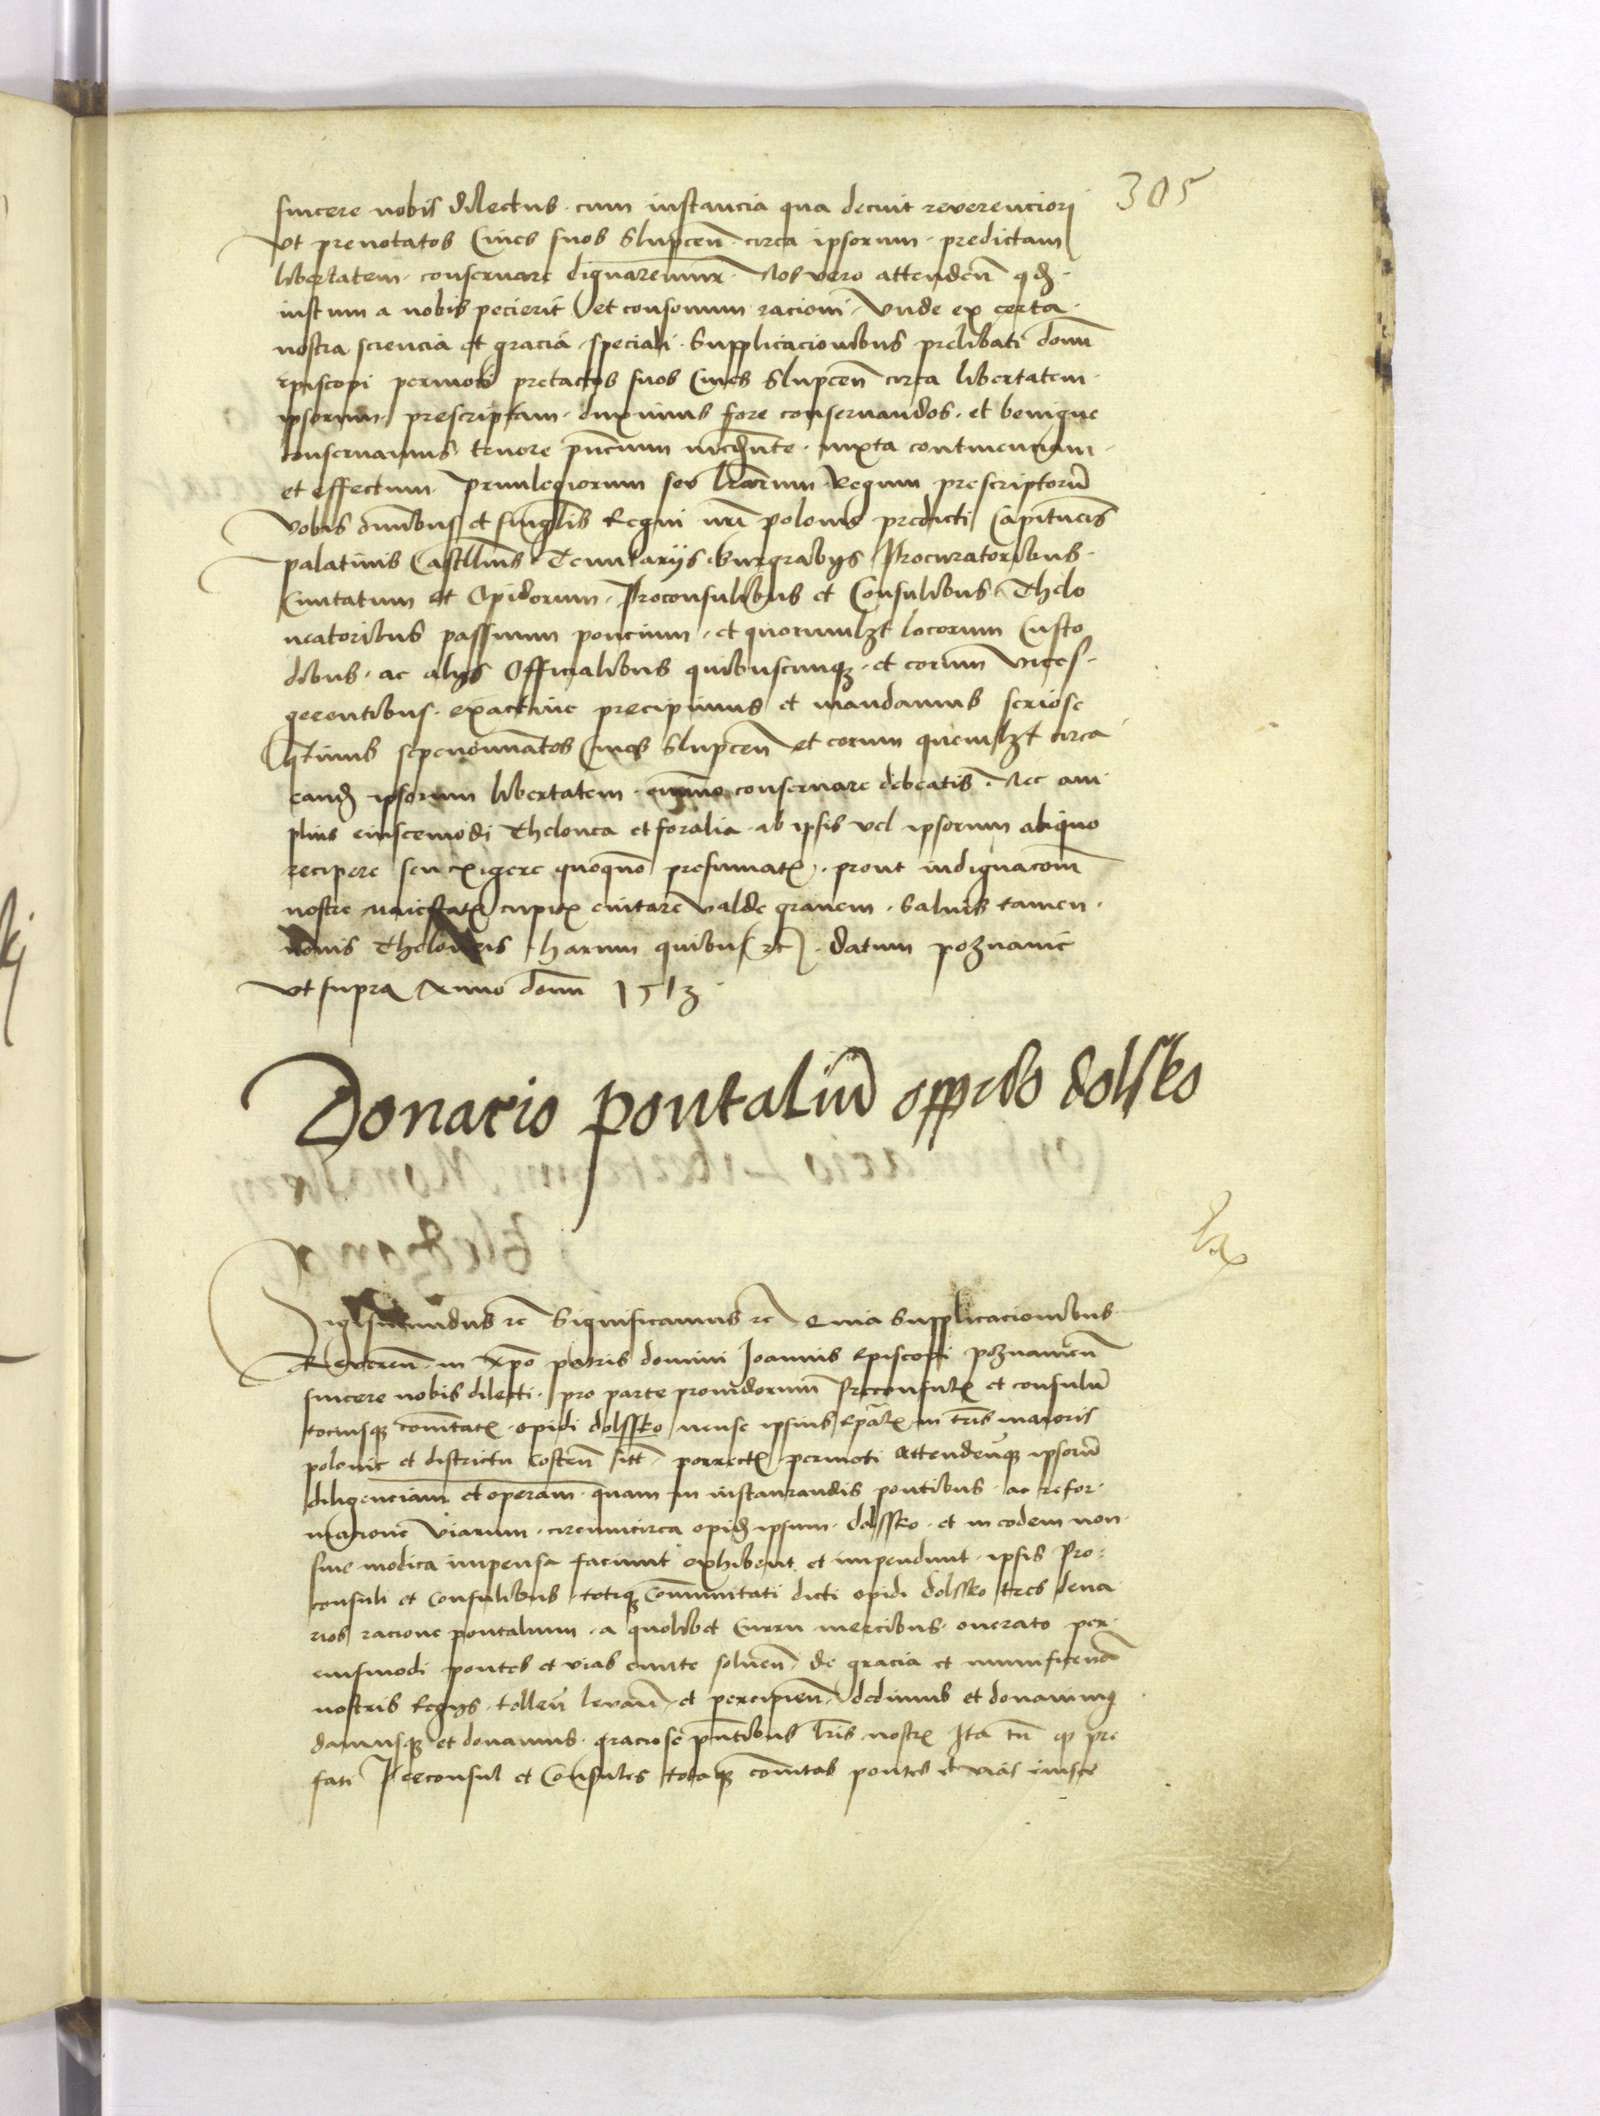 305
sincere nobis dilectus. cum instancia qua decuit reverenciori
Vt prenotatos Ciues suos Slupcen. circa ipsorum. predictam
libertatem. conseruare dignaremur. Nos vero attenden qd.
iustum a nobis pecierit et consonum racioni. Vnde ex certa
nostra sciencia et gracia speciali. Supplicacionibus prelibati domini
Episcopi permoti pretactos suos Ciues Slupcen circa libertatem
ipsorum. prescriptam. duximus fore conseruandos. et benigne
conseruamus tenore pncium mediante. iuxta continenciam
et effectum. Priuilegiorum seu lrarum Regum prescriptorum
Vobis omnibus et singulis Regni nri polonie predicti Capitaneis
palatinis Castellanis Tenutarijs Burgrabijs Procuratoribus
Ciuitatum et Opidorum. Proconsulibus et Consulibus. Thelo
neatoribus passuum poncium. et quorumlzt locorum Custo
dibus. ac alijs Officialibus quibuscunq. et eorum vices
gerentibus. exactiue precipimus et mandamus seriose
Quatinus sepenominatos Ciues Slupcen et eorum quemlzt circa
eand ipsorum libertatem. omnino conseruare debeatis. Nec am
plius eiuscemodi Thelonea et foralia ab ipsis vel ipsorum aliquo
recipere seu exigere quoquo presumatis. prout indignacom
nostre maiestatis cupitis euitare valde grauem. Saluis tamen
nouis Theloneis harum quibus etc. Datum poznanie
Vt supra Anno domini 1513

Donacio pontaliu oppido dolsko

Sigismundus etc Significamus etc Quia Supplicacionibus
Reueren. in xpo patris domini Ioannis Episcopi poznanien
sincere nobis dilecti. pro parte prouidorum Proconsulis et consulum
tociusq comitatis opidi dolssko mense ipsius Epatus in tris maioris
polonie et districtu Costen sitt. porrectis permoti Attendentesq ipsoru
diligenciam et operam. quam in instaurandis pontibus. ac refor
macione viarum. circumcirca opid ipsum. dolssko. et in eodem non
sine modica impensa faciunt exhibent et impendunt. ipsis Pro
consuli et Consulibus totiq Communitati dicti opidi dolssko tres dena
rios racione pontalium. a quolibet Curru mercibus onerato per
eiusmodi pontes et vias eunte soluen. de gracia et munificencia
nostris Regijs. tollen leuan et percipien dedimus et donauimus
damusq et donamus. graciose pntibus lris nostris Ita tn q pre
fati Proconsul et Consules totaq comitas pontes et vias eiusce